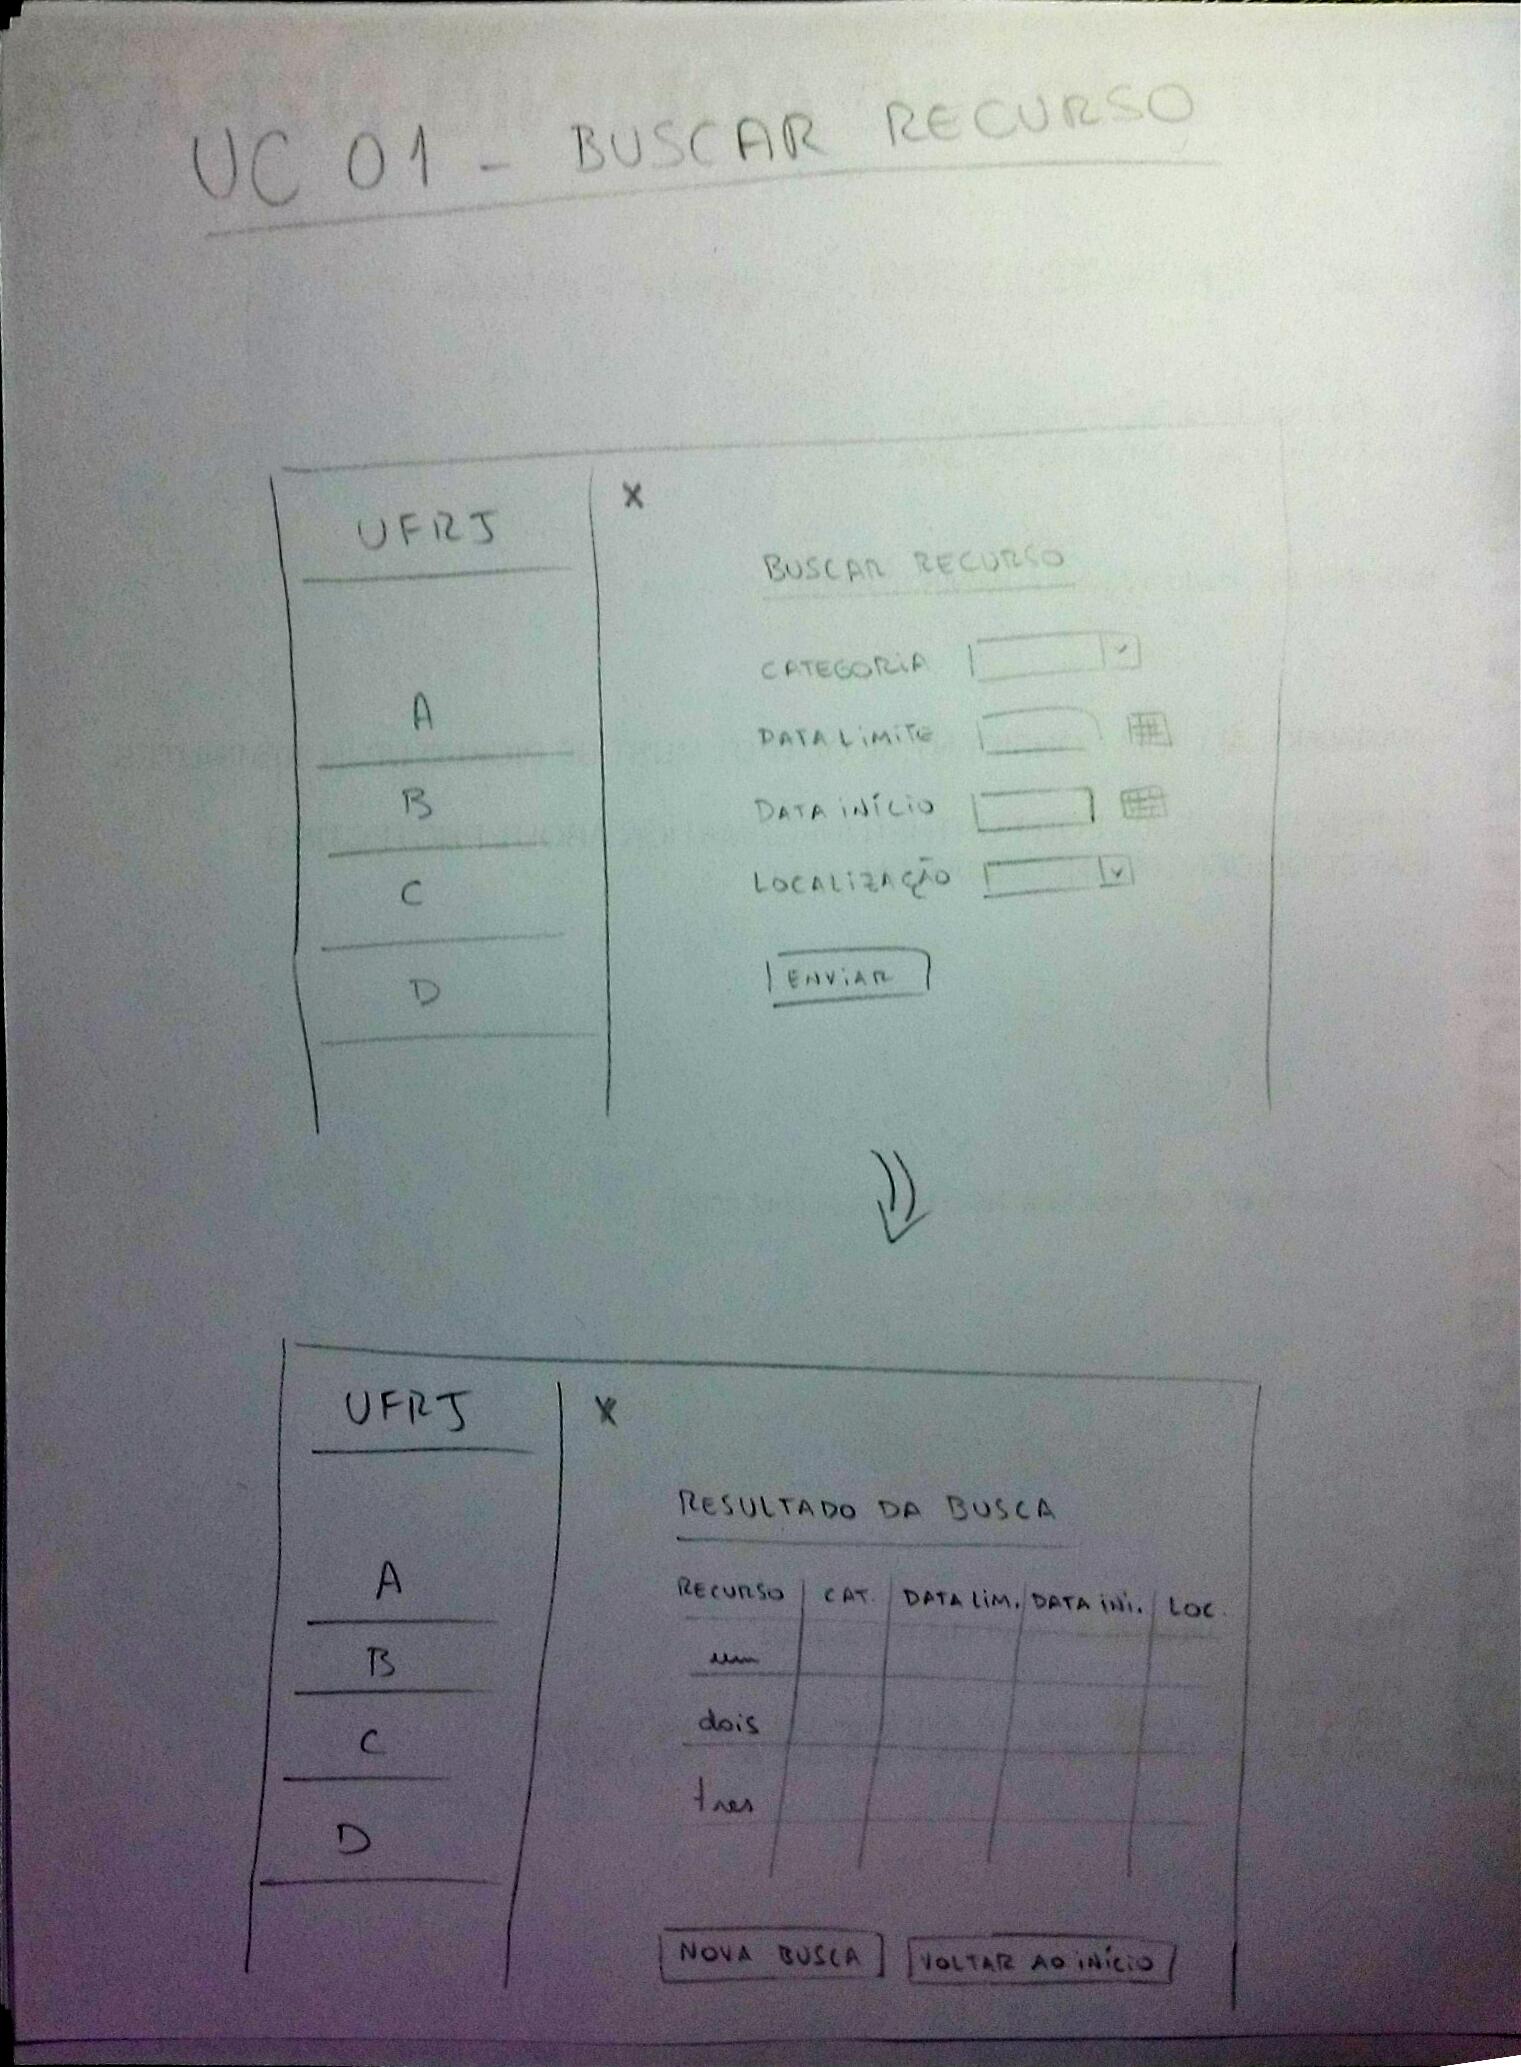 UC 01 - BUSCAR RECURSO
UFRJ
X
A
B
C
D
BUSCAR RECURSO
CATEGORIA
DATA LIMITE
DATA INÍCIO
LOCALIZAÇÃO
ENVIAR
UFRJ
X
A
B
C
D
RESULTADO DA BUSCA
RECURSO CAT. DATA LIM. DATA INI. LOC.
um
dois
tres
NOVA BUSCA VOLTAR AO INÍCIO